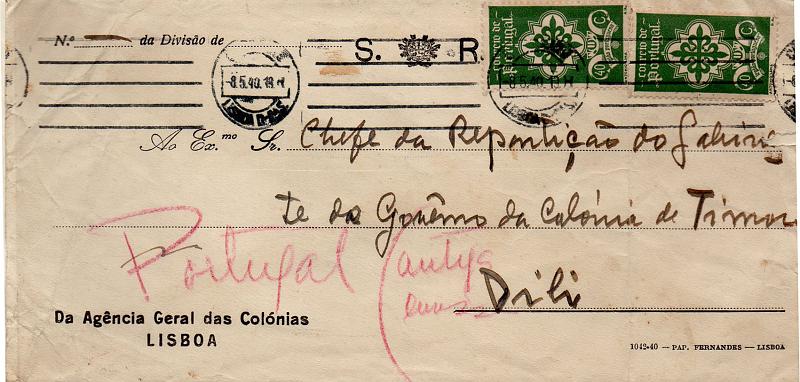 N.º da Divisão de
S. R.
CORREIO DE PORTUGAL 40 C.
CORREIO DE PORTUGAL 40 C.
-8.5.40.18 H
LISBOA
-8.5.40.18 H
LISBOA
Ao Ex.mo Sr. Chefe da Repartição do Gabine
te do Govêrno da Colónia de Timor
Portugal
Dili
Da Agência Geral das Colónias
LISBOA
1042-40 — PAP. FERNANDES — LISBOA